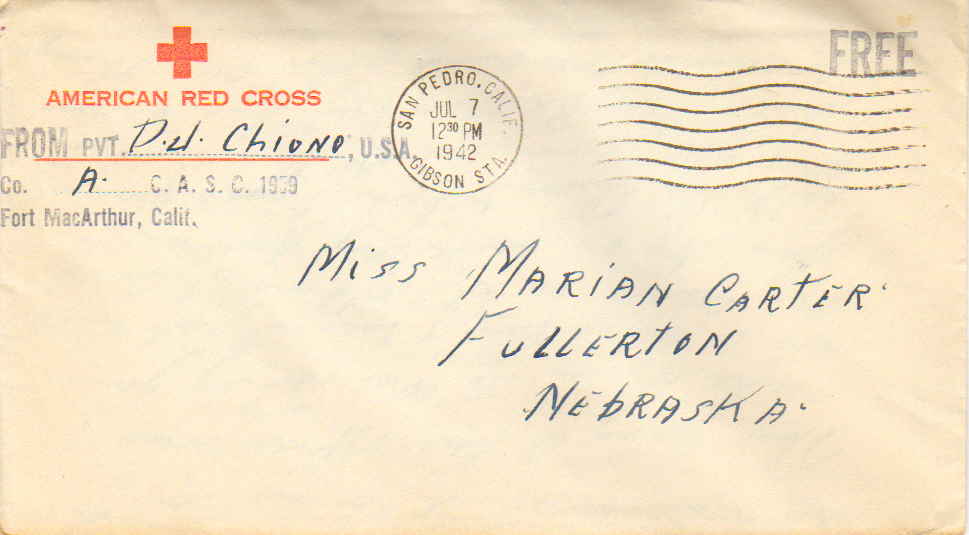 AMERICAN RED CROSS
FROM PVT. D.J. Chiono, U.S.A.
Co. A. C. A. S. C. 1959
Fort MacArthur, Calif.
SAN PEDRO, CALIF.
JUL 7
12 30 PM
1942
GIBSON STA.
FREE
Miss Marian Carter
Fullerton
Nebraska.